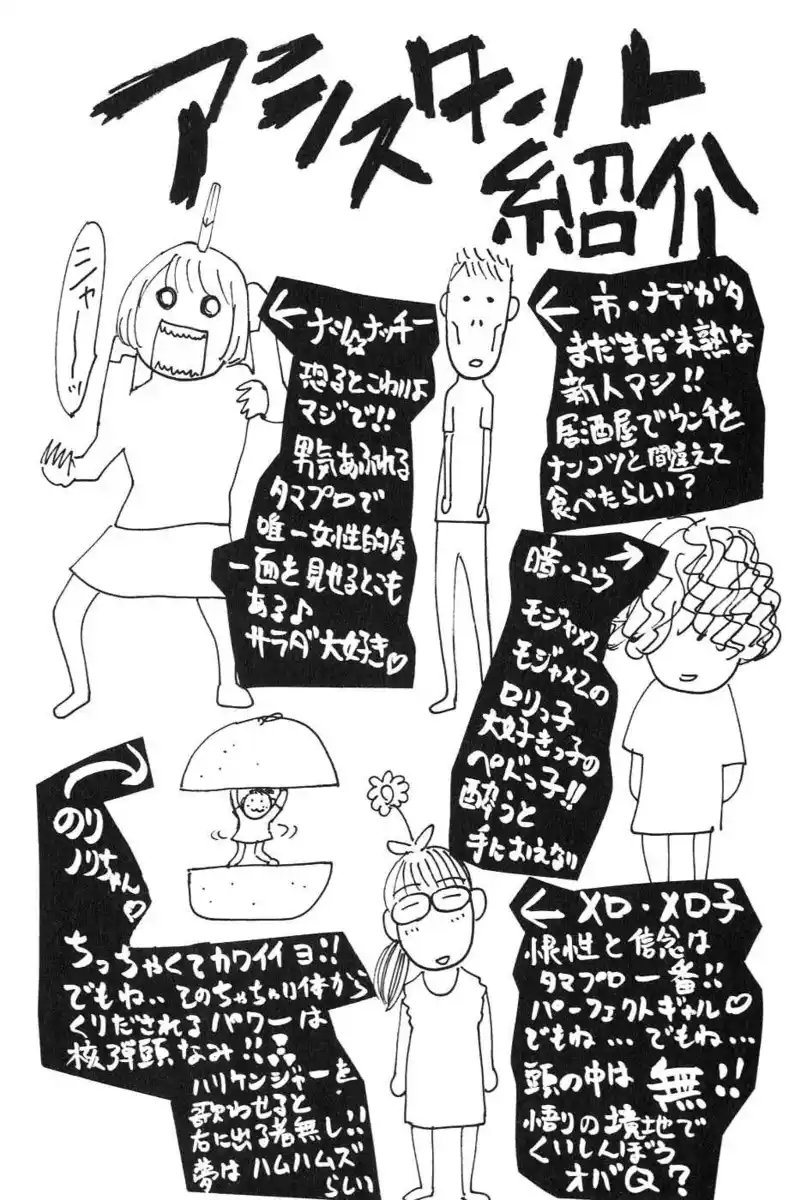 アシスタント
紹介
← 市・ナデガタ
まだまだ未熟な
新人マシ!!
居酒屋でウンチを
ナンコツと間違えて
食べたらしい?
ニャーッ
← ナツ☆ナッチー
恐るとこわいよ
マジで!!
男気あふれる
タマプロで
唯一女性的な
一面を見せるとこも
ある♪
サラダ大好き♡
暗・ユウ →
モジャ×2
モジャ×2の
ロリっ子
大好きっ子の
ペドっ子!!
酔うと
手におえない
のり
ノリちゃん♡
ちっちゃくてカワイイヨ!!
でもね‥そのちゃちんり体から
くりだされるパワーは
核弾頭なみ!!
ハリケンジャーを
歌わせると
右に出る者無し!!
夢はハムハムズ
らしい
← メロ・メロ子
根性と信念は
タマプロ一番!!
パーフェクトギャル♡
でもね…でもね…
頭の中は無!!
悟りの境地で
くいしんぼう
オバQ?